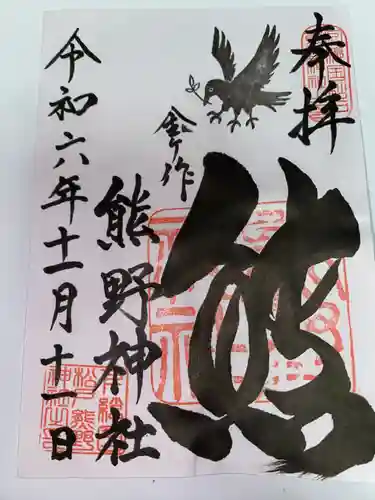 奉拝
熊
金ヶ作
熊野神社
令和六年十一月十一日